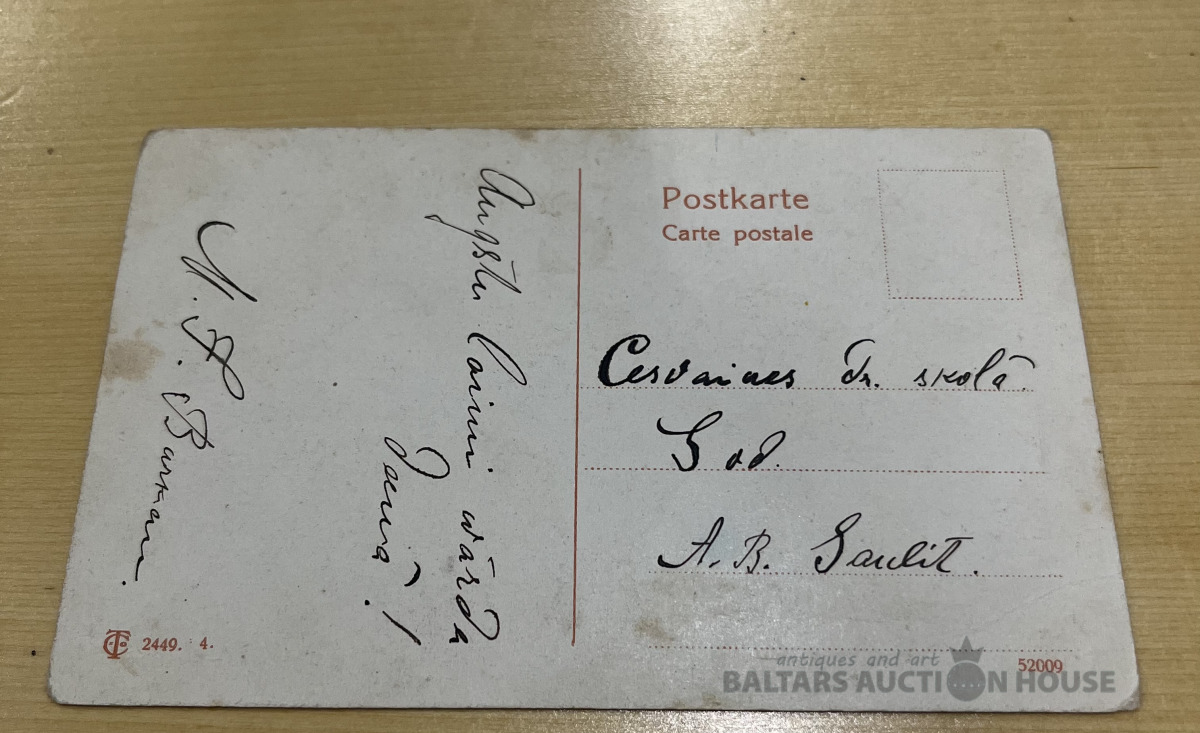 Augstu laimi wārda
Jaunā!
M. A. Barkan.
Postkarte
Carte postale
Cesvaines Dr. skolā.
God.
A. B. Saulit.
2449. 4.
52009
antiques and art
BALTARS AUCTION HOUSE